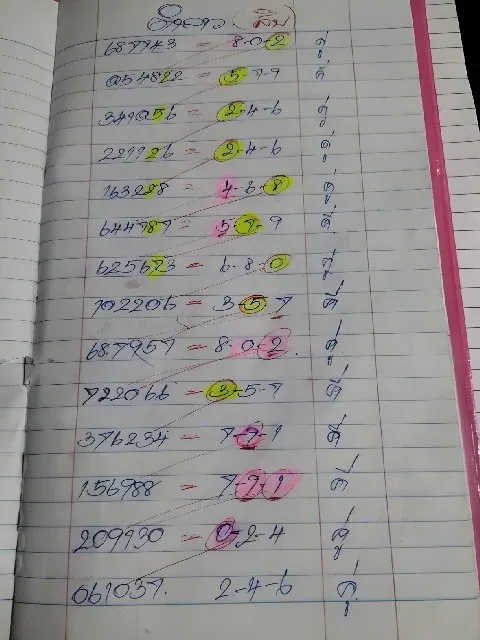 687943 = 8-0-2 คู่
054822 = 5-7-9 คี่
349056 = 2-4-6 คู่
229926 = 2-4-6 คู่
163228 = 4-6-8 คู่
644787 = 5-7-9 คี่
625673 = 6-8-0 คู่
702206 = 3-5-7 คี่
687957 = 8-0-2 คู่
722066 = 3-5-7 คี่
376234 = 7-9-1 คี่
156988 = 7-9-1 คี่
209930 = 0-2-4 คู่
061037. 2-4-6 คู่